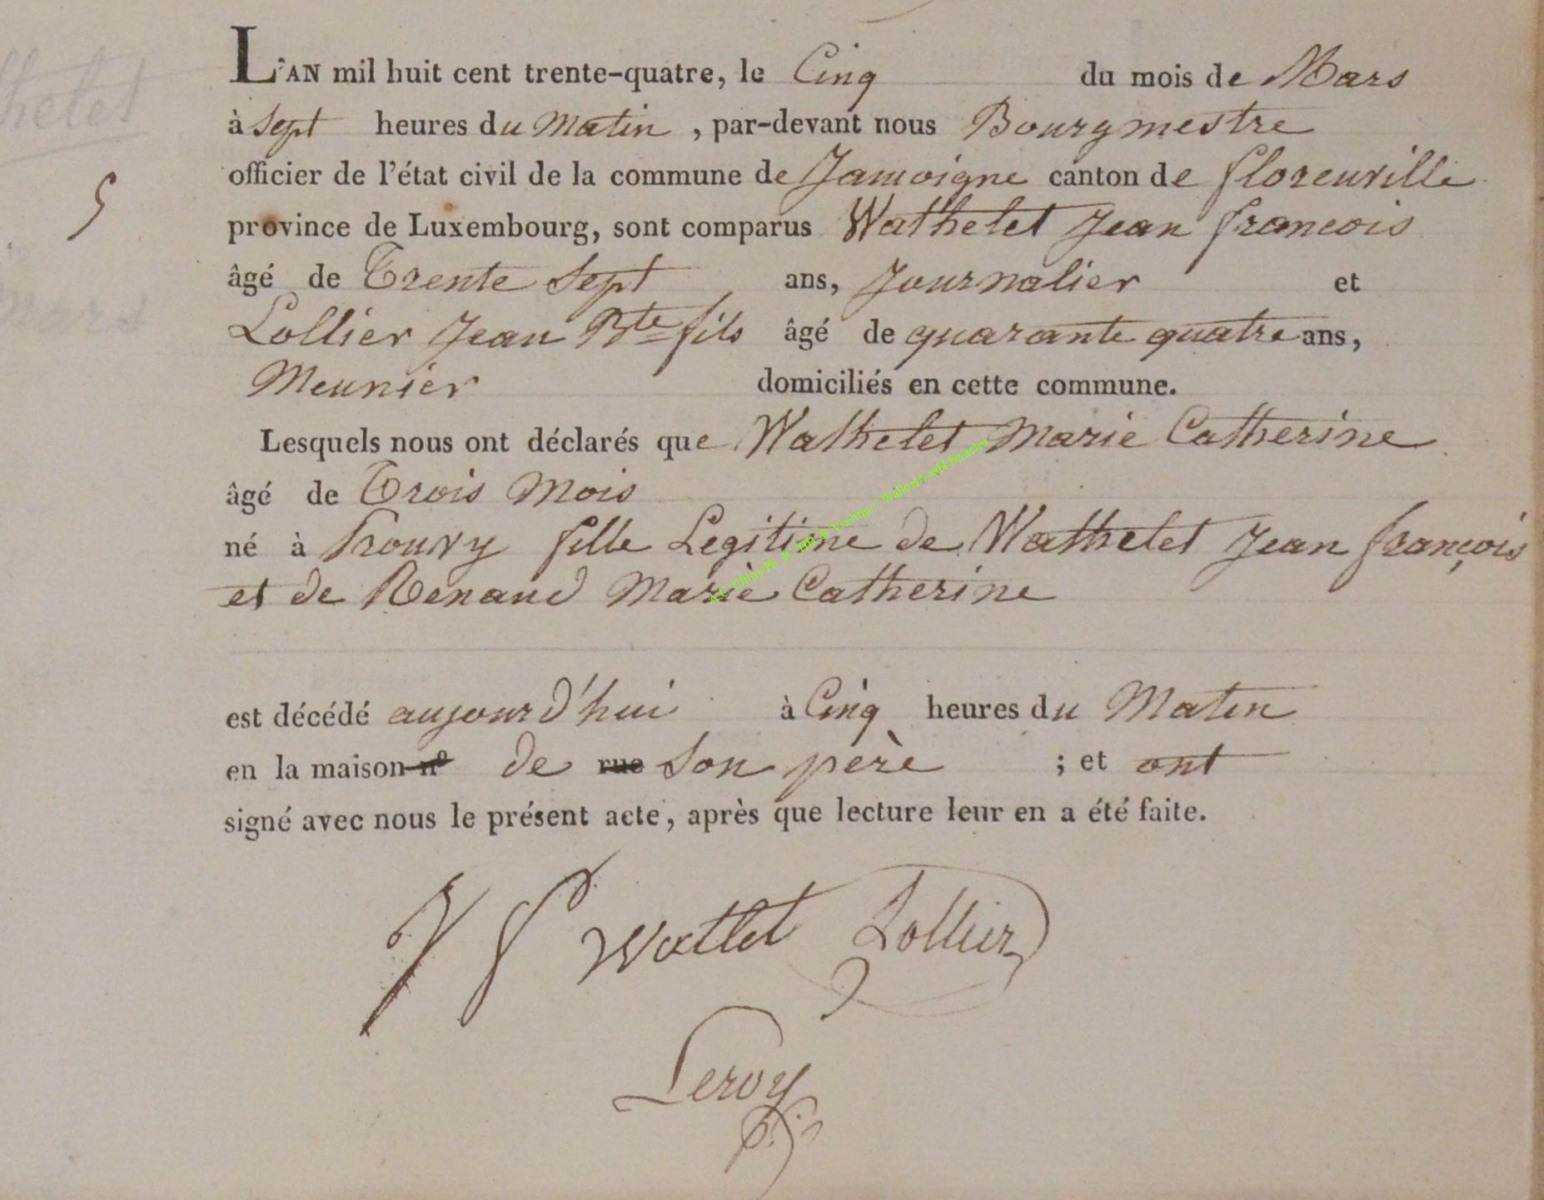 L'AN mil huit cent trente-quatre, le Cinq du mois de Mars
à sept heures du Matin, par-devant nous Bourgmestre
officier de l'état civil de la commune de Jamoigne canton de florenville
province de Luxembourg, sont comparus Wathelet Jean francois
5
âgé de Trente Sept ans, Journalier et
Lollier Jean Bte fils âgé de quarante quatre ans,
Meunier domiciliés en cette commune.
Lesquels nous ont déclarés que Wathelet Marie Catherine
âgé de Trois Mois
né à Prouvy fille Legitime de Wathelet Jean françois
et de Renaud Marie Catherine
est décédé aujourd'hui à Cinq heures du Matin
en la maison n° de rue son père ; et ont
signé avec nous le présent acte, après que lecture leur en a été faite.
J f Watlet Lollier
Leroy